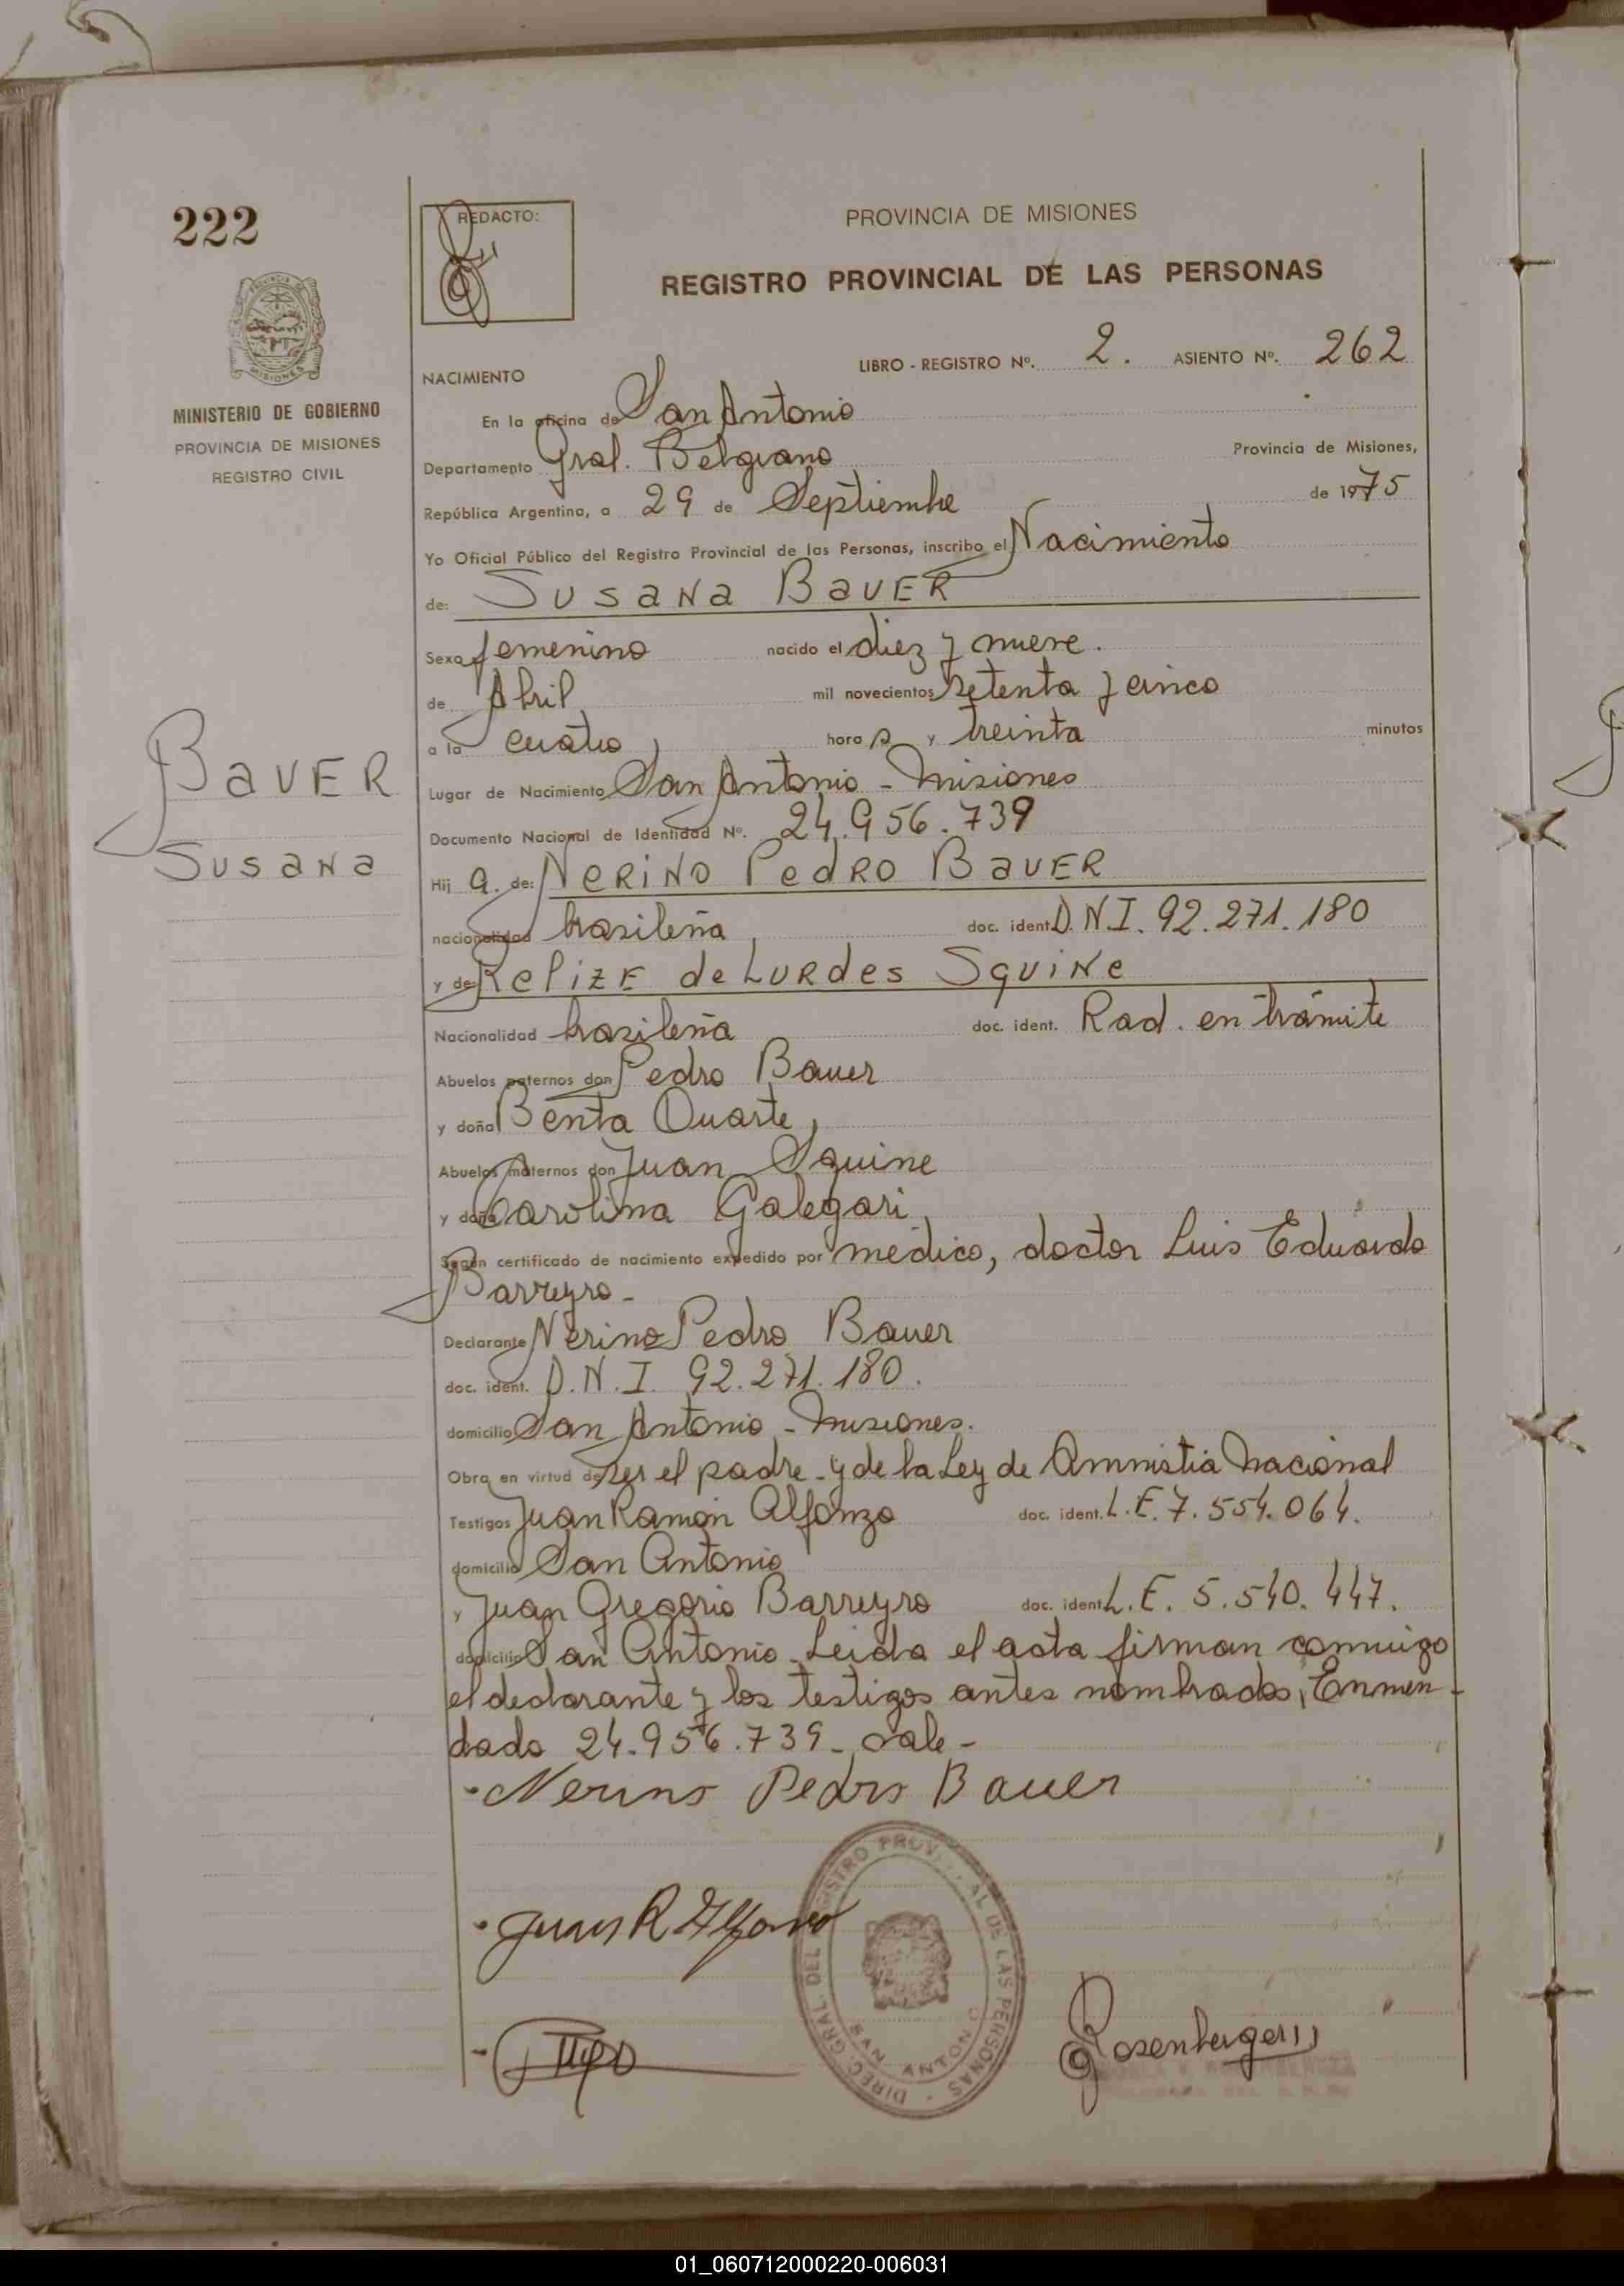 222
REDACTO:
PROVINCIA DE MISIONES
REGISTRO PROVINCIAL DE LAS PERSONAS
MISIONES
MINISTERIO DE GOBIERNO
PROVINCIA DE MISIONES
REGISTRO CIVIL
LIBRO - REGISTRO Nº. 2. ASIENTO Nº. 262
NACIMIENTO
En la oficina de San Antonio
Departamento Gral. Belgrano Provincia de Misiones,
República Argentina, a 29 de Septiembre de 1975
Yo Oficial Público del Registro Provincial de las Personas, inscribo el Nacimiento
de: SUSANA BAUER
Sexo femenino nacido el diez y nueve.
de Abril mil novecientos setenta y cinco
a la cuatro hora s y treinta minutos
BAUER
SUSANA
Lugar de Nacimiento San Antonio - Misiones
Documento Nacional de Identidad Nº. 24.956.739
Hij a. de: NERINO PEDRO BAUER
nacionalidad brasileña doc. ident. D.N.I. 92.271.180
y de: RELIZE de LURdes SQUINE
Nacionalidad brasileña doc. ident. Rad. en trámite
Abuelos paternos don Pedro Bauer
y doña Benta Duarte
Abuelos maternos don Juan Squine
y doña Carolina Galegari
Según certificado de nacimiento expedido por médico, doctor Luis Eduardo
Barreyro-
Declarante Nerino Pedro Bauer
doc. ident. D.N.I. 92.271.180.
domicilio San Antonio - Misiones.
Obra en virtud de ser el padre - y de la Ley de Amnistia Nacional
Testigos Juan Ramón Alfonzo doc. ident. L.E. 7.554.064.
domicilio San Antonio
y Juan Gregorio Barreyro doc. ident. L.E. 5.540.447.
domicilio San Antonio - Leida el acta firman conmigo
el declarante y los testigos antes nombrados, Enmen-
dado 24.956.739 - vale -
Nerino Pedro Bauer
Juan R Alfonso
DIREC. GRAL. DEL REGISTRO PROV AL DE LAS PERSONAS
SAN ANTONIO
Rosenberger
01_060712000220-006031